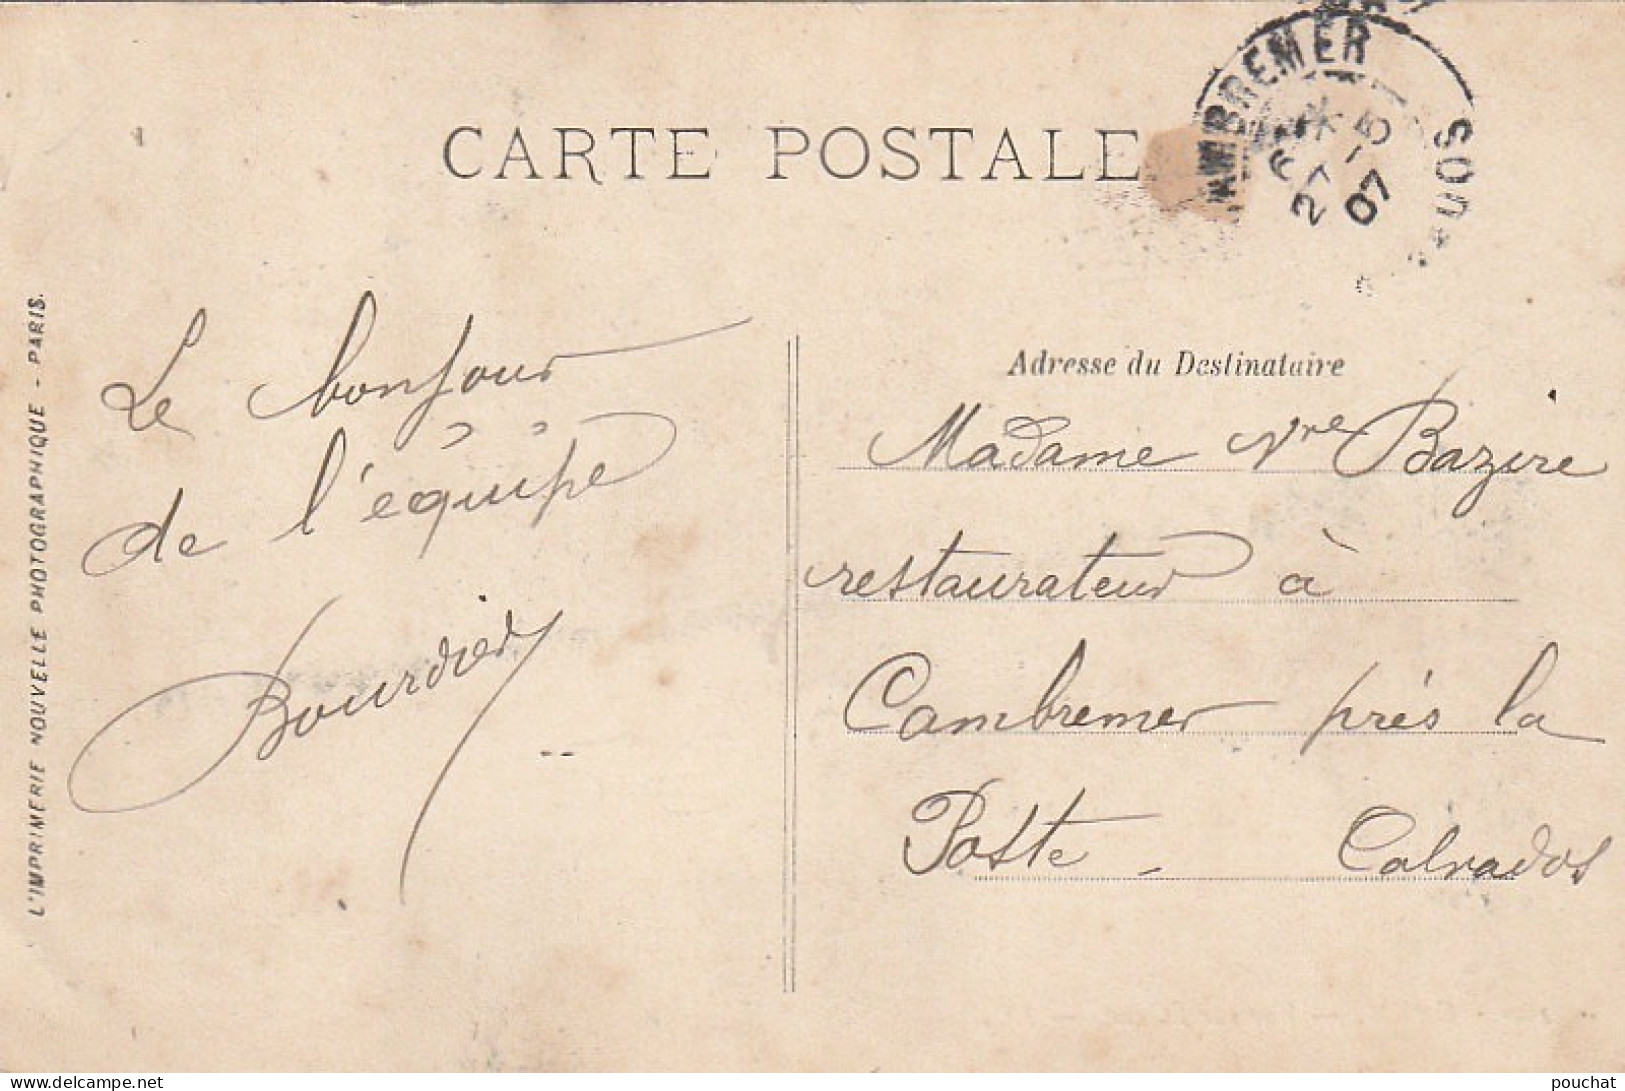 CARTE POSTALE
CAMBREMER
27 - 5
07
L'IMPRIMERIE NOUVELLE PHOTOGRAPHIQUE - PARIS.
Le bonjour
de l'équipe
Bourdier
Adresse du Destinataire
Madame Vve Bazire
restaurateur à
Cambremer prés la
Poste - Calvados
delcampe.net
pouchat